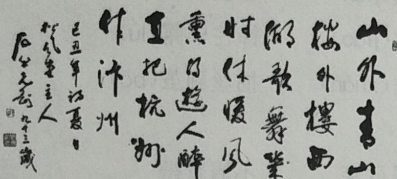 山外青山
楼外樓西
湖歌舞幾
时休暖风
熏得遊人醉
直把杭州
作汴州
己丑年初夏日
主人
九十三歲